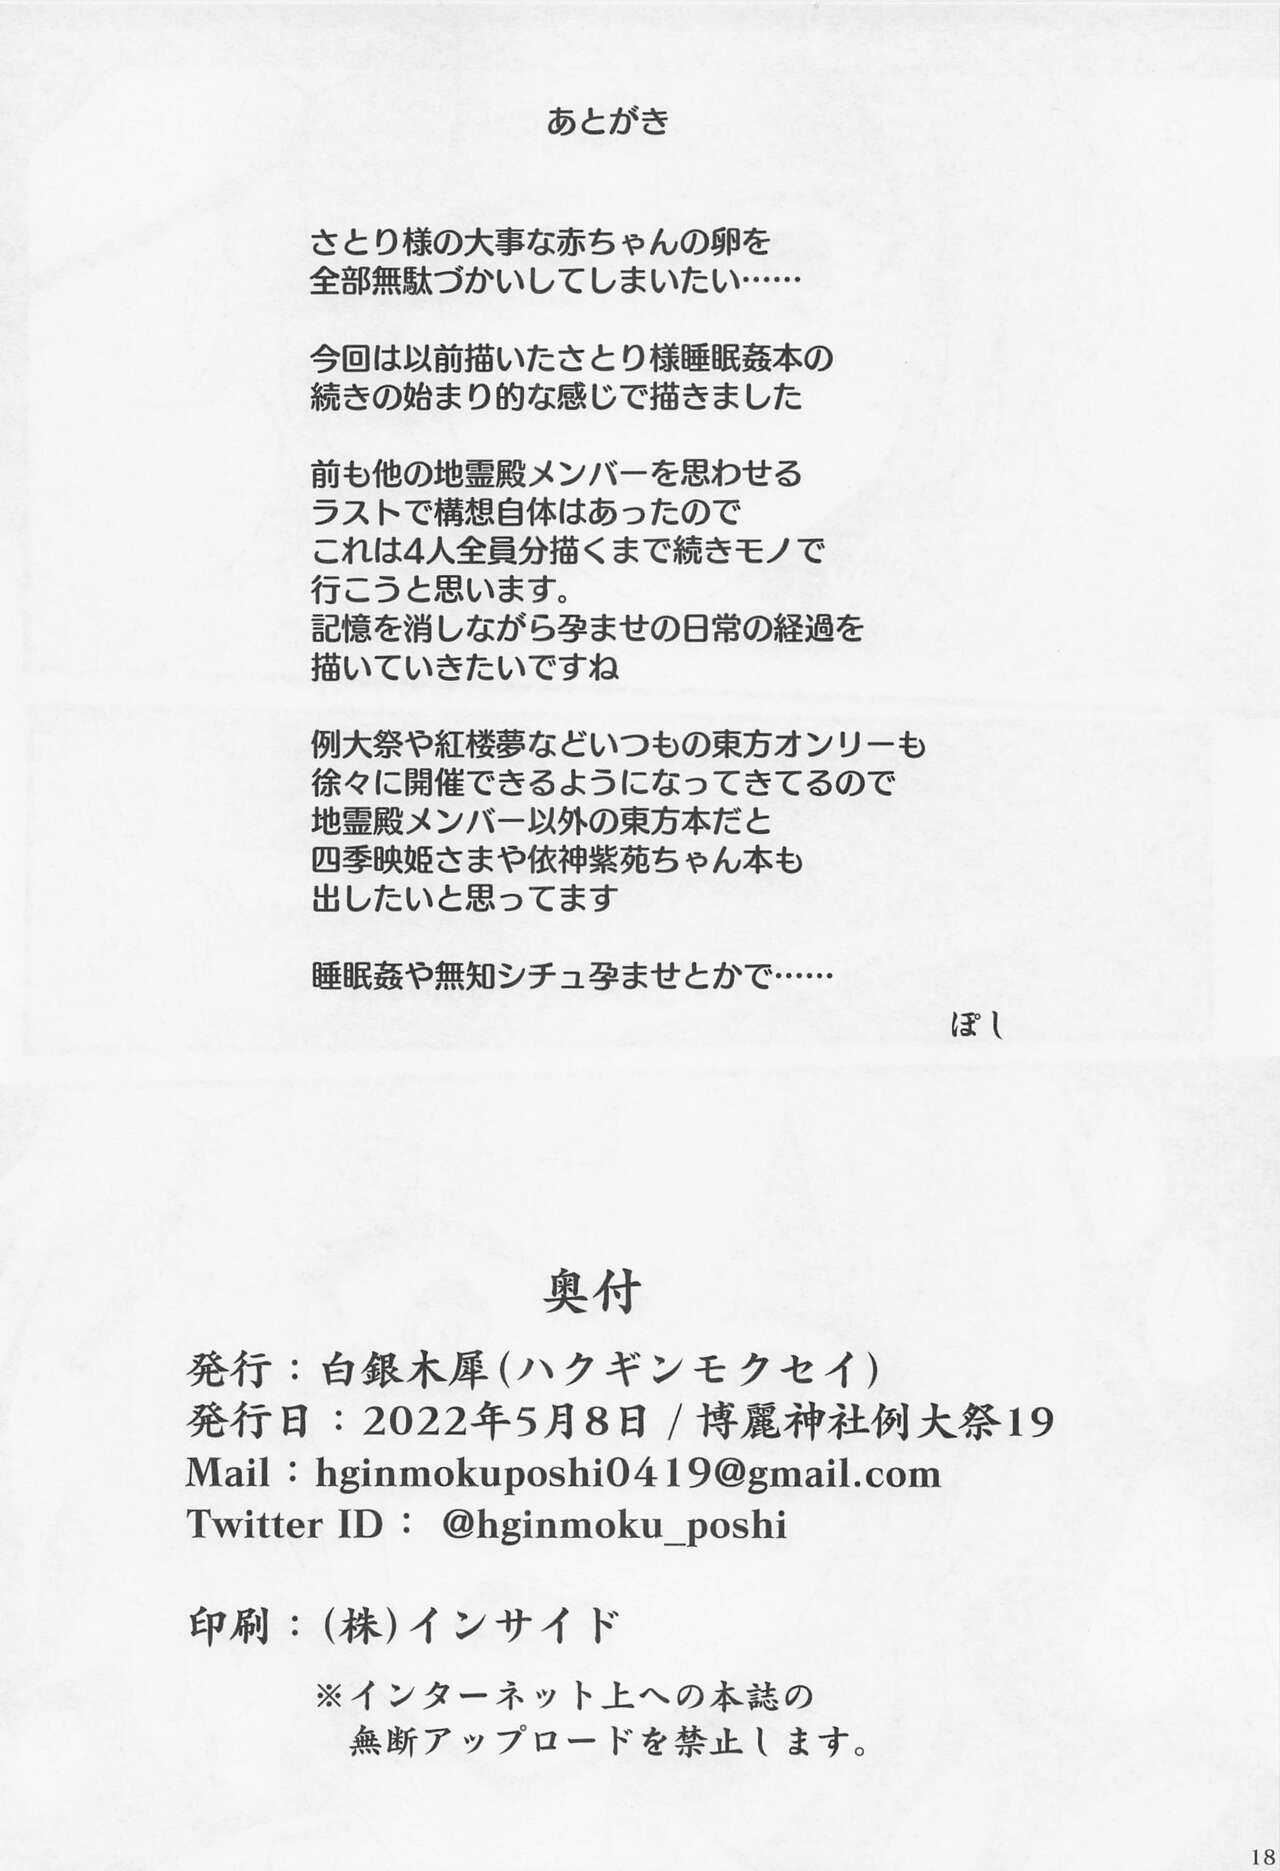 あとがき
さとり様の大事な赤ちゃんの卵を
全部無駄づかいしてしまいたい……
今回は以前描いたさとり様睡眠姦本の
続きの始まり的な感じで描きました
前も他の地霊殿メンバーを思わせる
ラストで構想自体はあったので
これは4人全員分描くまで続きモノで
行こうと思います。
記憶を消しながら孕ませの日常の経過を
描いていきたいですね
例大祭や紅楼夢などいつもの東方オンリーも
徐々に開催できるようになってきてるので
地霊殿メンバー以外の東方本だと
四季映姫さまや依神紫苑ちゃん本も
出したいと思ってます
睡眠姦や無知シチュ孕ませとかで……
ぽし
奥付
発行：白銀木犀(ハクギンモクセイ)
発行日：2022年5月8日 / 博麗神社例大祭19
Mail：hginmokuposhi0419@gmail.com
Twitter ID： @hginmoku_poshi
印刷：(株)インサイド
※インターネット上への本誌の
無断アップロードを禁止します。
18